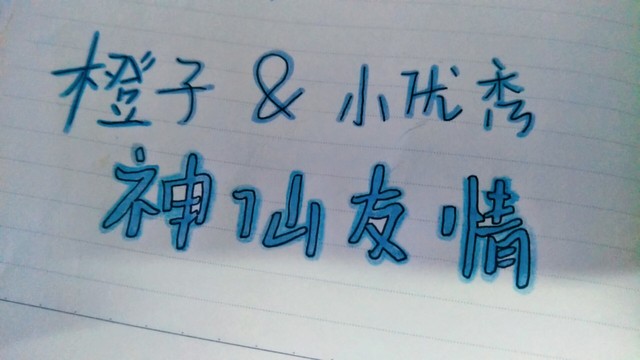 橙子 & 小优秀
神仙友情